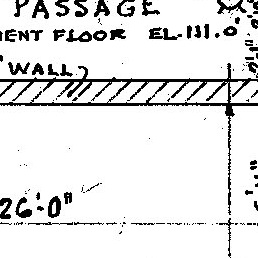 PASSAGE
MENT FLOOR EL.111.0
WALL
26'-0"